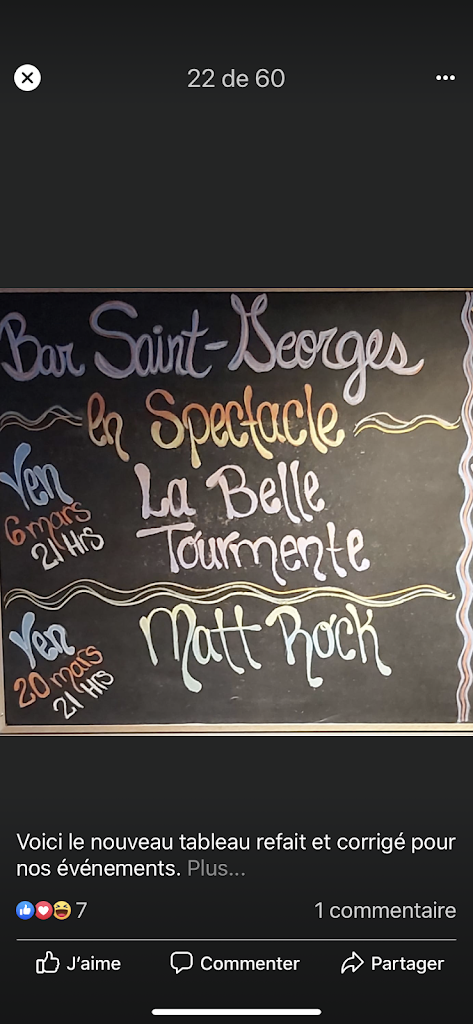 22 de 60
Bar Saint-Georges
en Spectacle
Ven
6 mars
21 HRS
La Belle
Tourmente
Ven
20 mars
21 HRS
Matt Rock
Voici le nouveau tableau refait et corrigé pour
nos événements. Plus...
7
1 commentaire
J'aime
Commenter
Partager